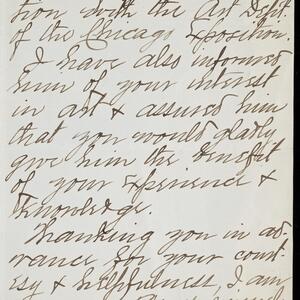 tion with the Art Dept.
of the Chicago Exposition.
I have also informed
him of your interest
in art & assured him
that you would gladly
give him the benefit
of your experience &
knowledge.
Thanking you in ad-
vance for your court-
esy & helpfulness, I am